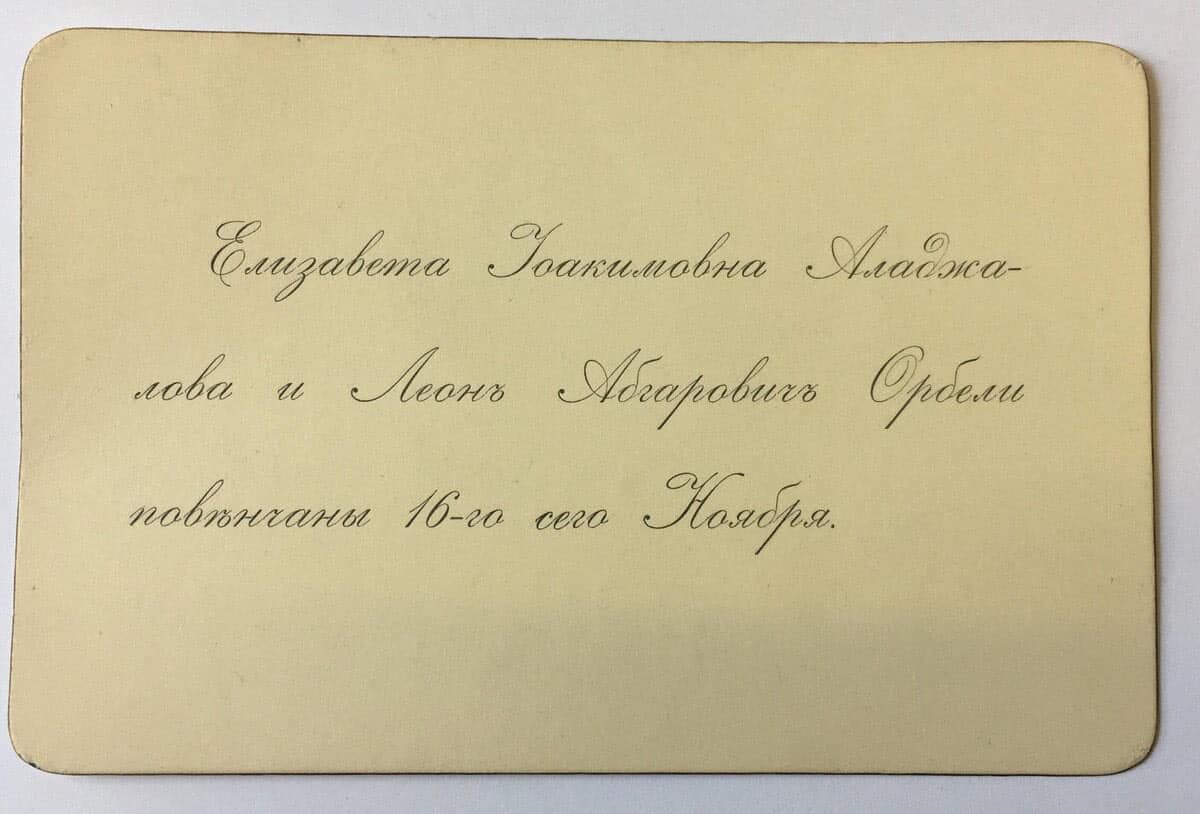 Елизавета Іоакимовна Аладжа-
лова и Леонъ Абгаровичъ Орбели
повѣнчаны 16-го сего Ноября.